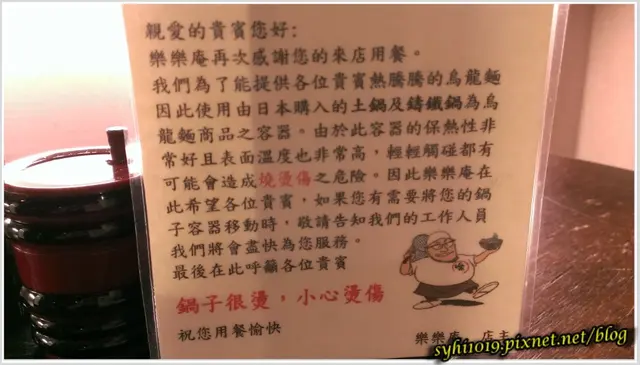 親愛的貴賓您好:
樂樂庵再次感謝您的來店用餐。
我們為了能提供各位貴賓熱騰騰的烏龍麵
因此使用由日本購入的土鍋及鑄鐵鍋為烏
龍麵商品之容器。由於此容器的保熱性非
常好且表面溫度也非常高，輕輕觸碰都有
可能會造成燒燙傷之危險。因此樂樂庵在
此希望各位貴賓，如果您有需要將您的鍋
子容器移動時，敬請告知我們的工作人員
我們將會盡快為您服務。
最後在此呼籲各位貴賓
鍋子很燙，小心燙傷
祝您用餐愉快
樂樂庵 店主
syhi1019.pixnet.net/blog